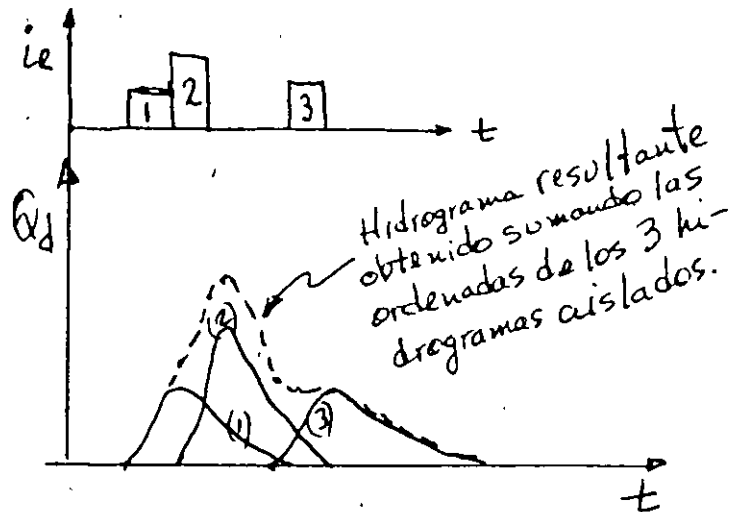 ie
1
2
3
t
Qd
Hidrograma resultante
obtenido sumando las
ordenadas de los 3 hi-
drogramas aislados.
(2)
(1)
(3)
t